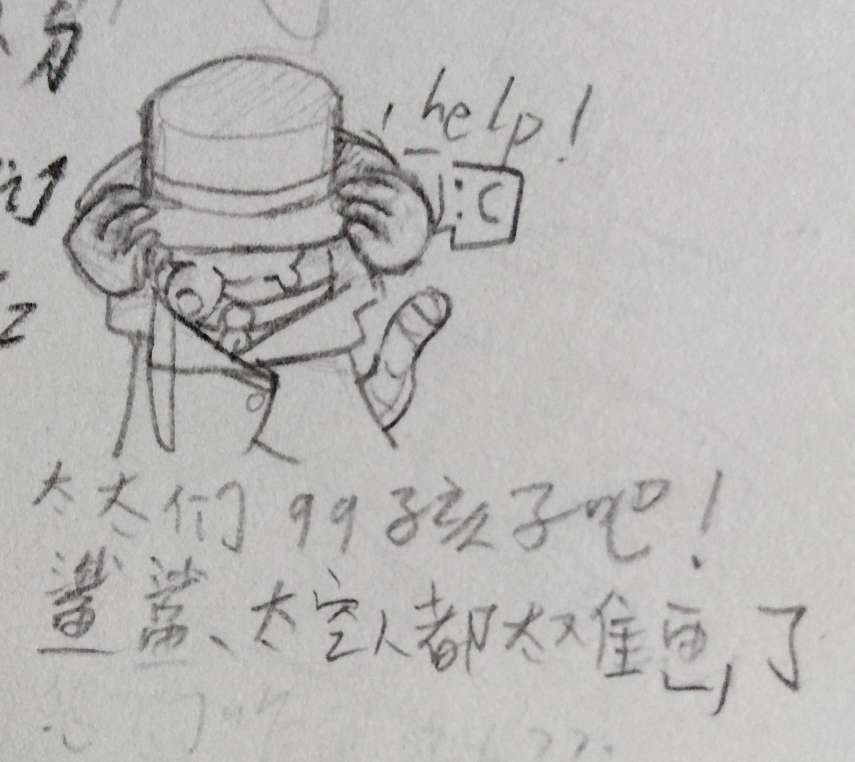 help!
:C
太太们 99 孩子吧!
鲨鲨、太空人都太难画了